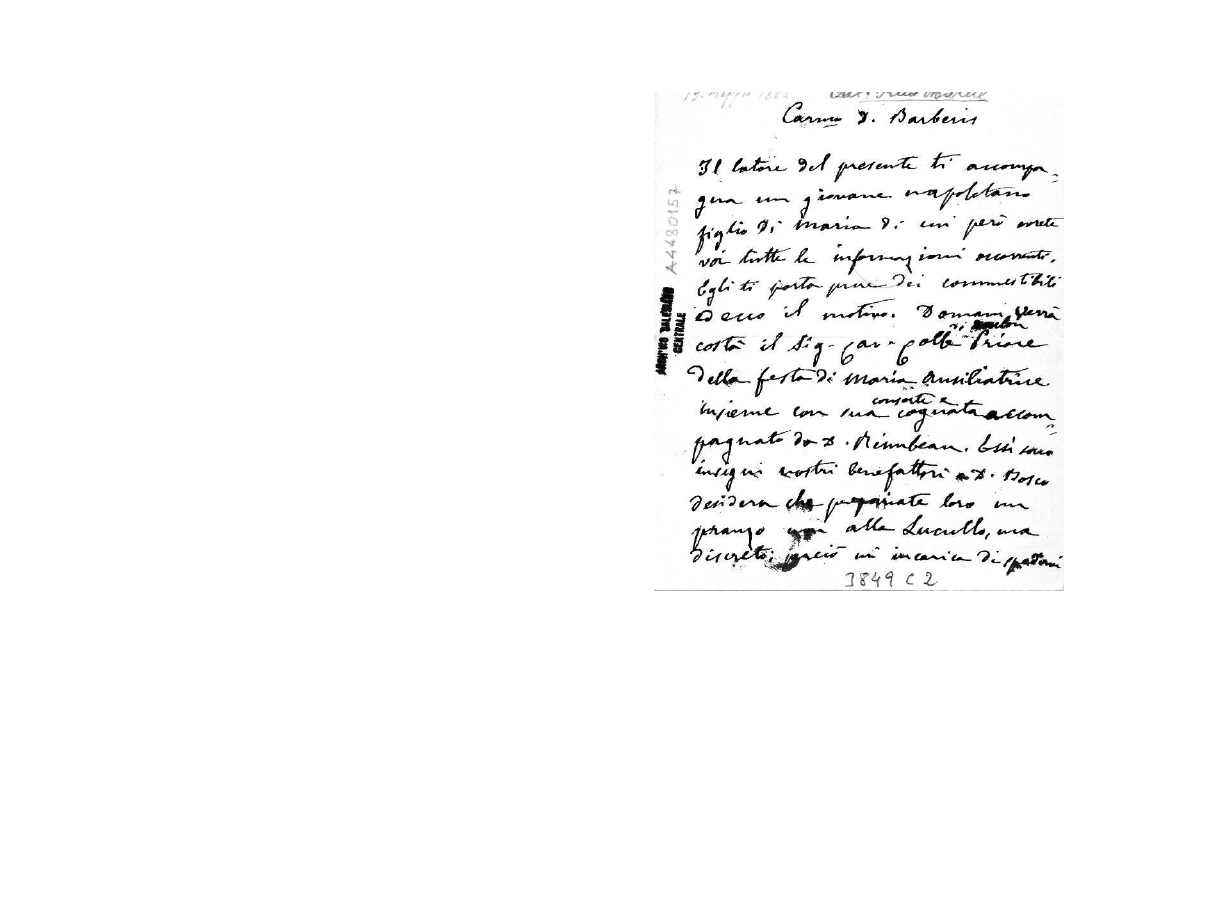 Carmo D. Barberis
Il latore del presente ti accompa=
gna un giovane napoletano
figlio di Maria di cui però avrete
voi tutte le informazioni occorrenti.
Egli ti porta pure dei commestibili
ed ecco il motivo. Domani verrà
costà il Sig. Priore
della festa di Maria Ausiliatrice
consorte e
insieme con sua cognata accom=
pagnato da D. Rimbeau. Essi sono
insigni nostri benefattori e D. Bosco
desidera che prepariate loro un
pranzo non alla Lucullo, ma
discreto; perciò m'incarica di spedirvi
A4480157
ARCHIVIO SALESIANO
CENTRALE
3849 C 2